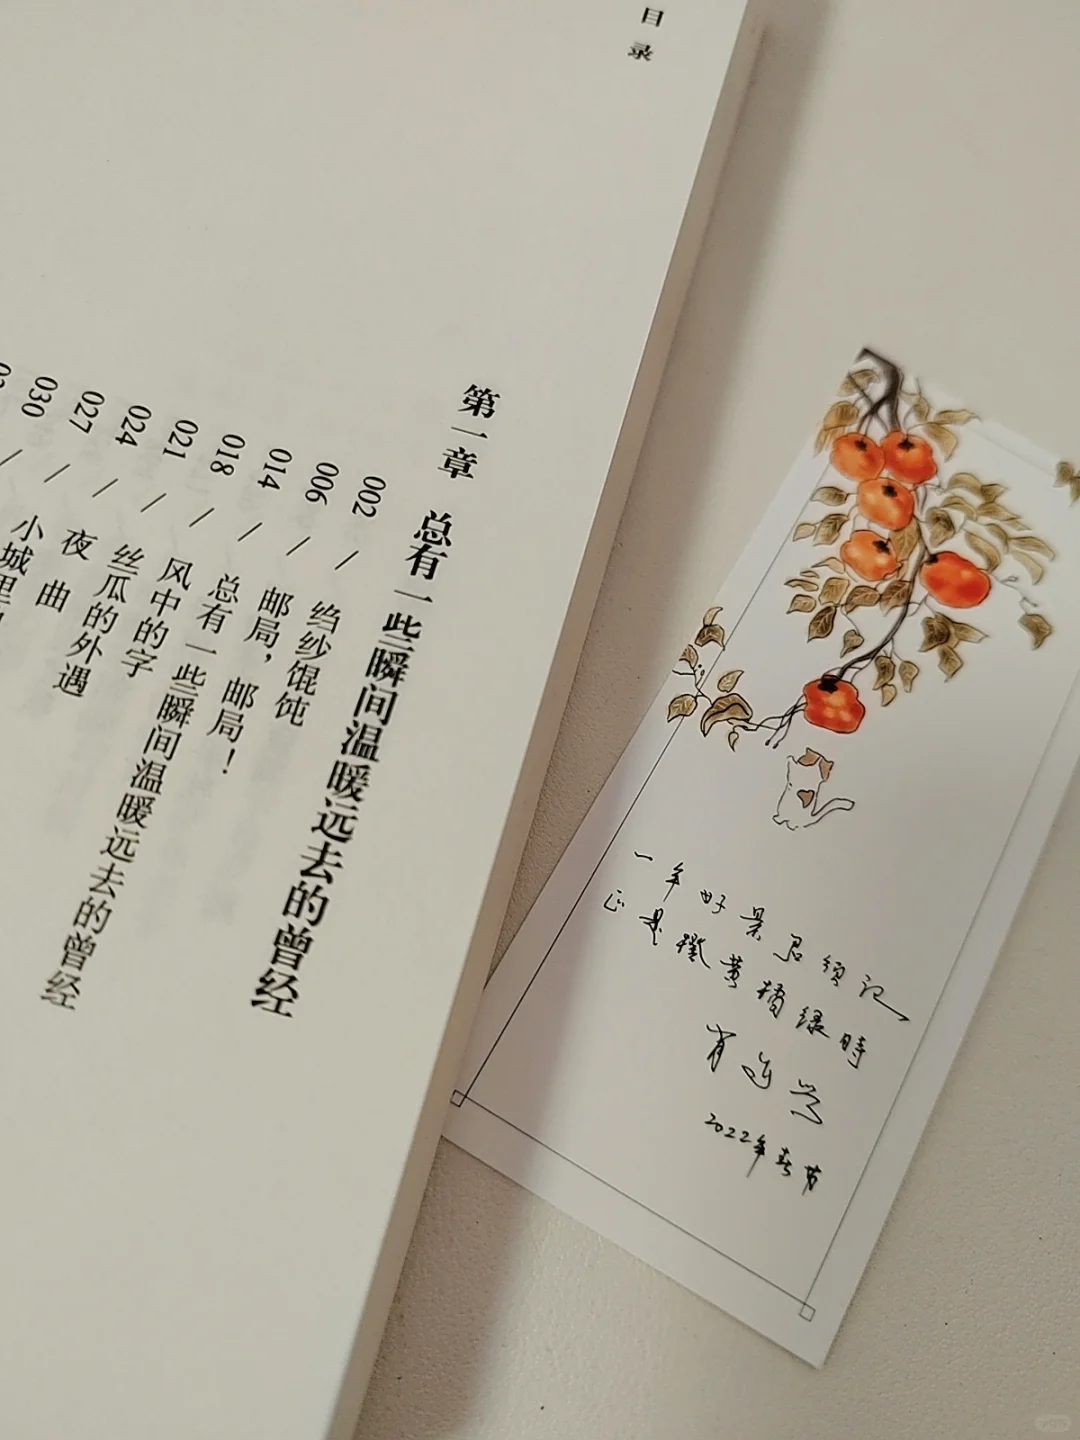 目录
第一章 总有一些瞬间温暖远去的曾经
002 / 绉纱馄饨
006 / 邮局，邮局！
014 / 总有一些瞬间温暖远去的曾经
018 / 风中的字
021 / 丝瓜的外遇
024 / 夜曲
027 / 小城里
030 /
一年好景君须记
正是橙黄橘绿時
2022年春节